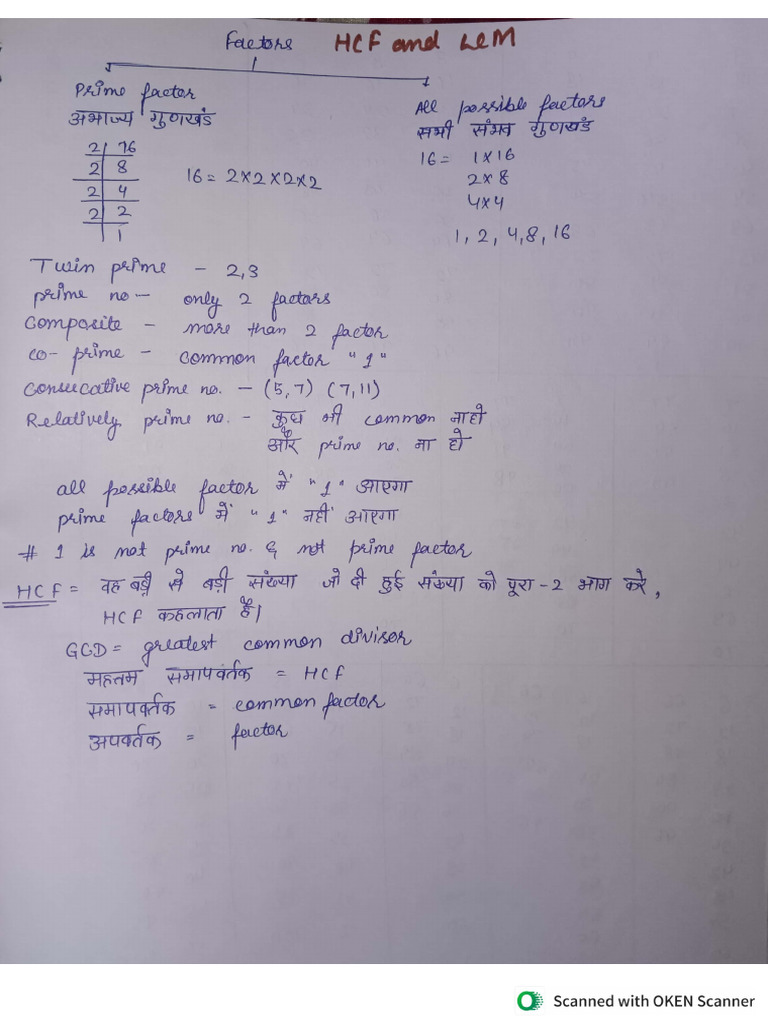 Factors HCF and LCM
Prime factor
अभाज्य गुणखंड
All possible factors
सभी संभव गुणखंड
2 | 16
2 | 8
2 | 4
2 | 2
| 1
16 = 2×2×2×2
16 = 1×16
2×8
4×4
1, 2, 4, 8, 16
Twin prime - 2,3
prime no - only 2 factors
Composite - more than 2 factor
co-prime - common factor "1"
Consecative prime no. - (5,7) (7,11)
Relatively prime no. - कुछ भी common ना हो
और prime no. ना हो
all possible factor में "1" आएगा
prime factors में "1" नहीं आएगा
# 1 is not prime no. & not prime factor
HCF = वह बड़ी से बड़ी संख्या जो दी हुई संख्या को पूरा-2 भाग करे,
HCF कहलाता है।
GCD = greatest common divisor
महतम समापवर्तक = HCF
समापवर्तक = common factor
अपवर्तक = factor
Scanned with OKEN Scanner